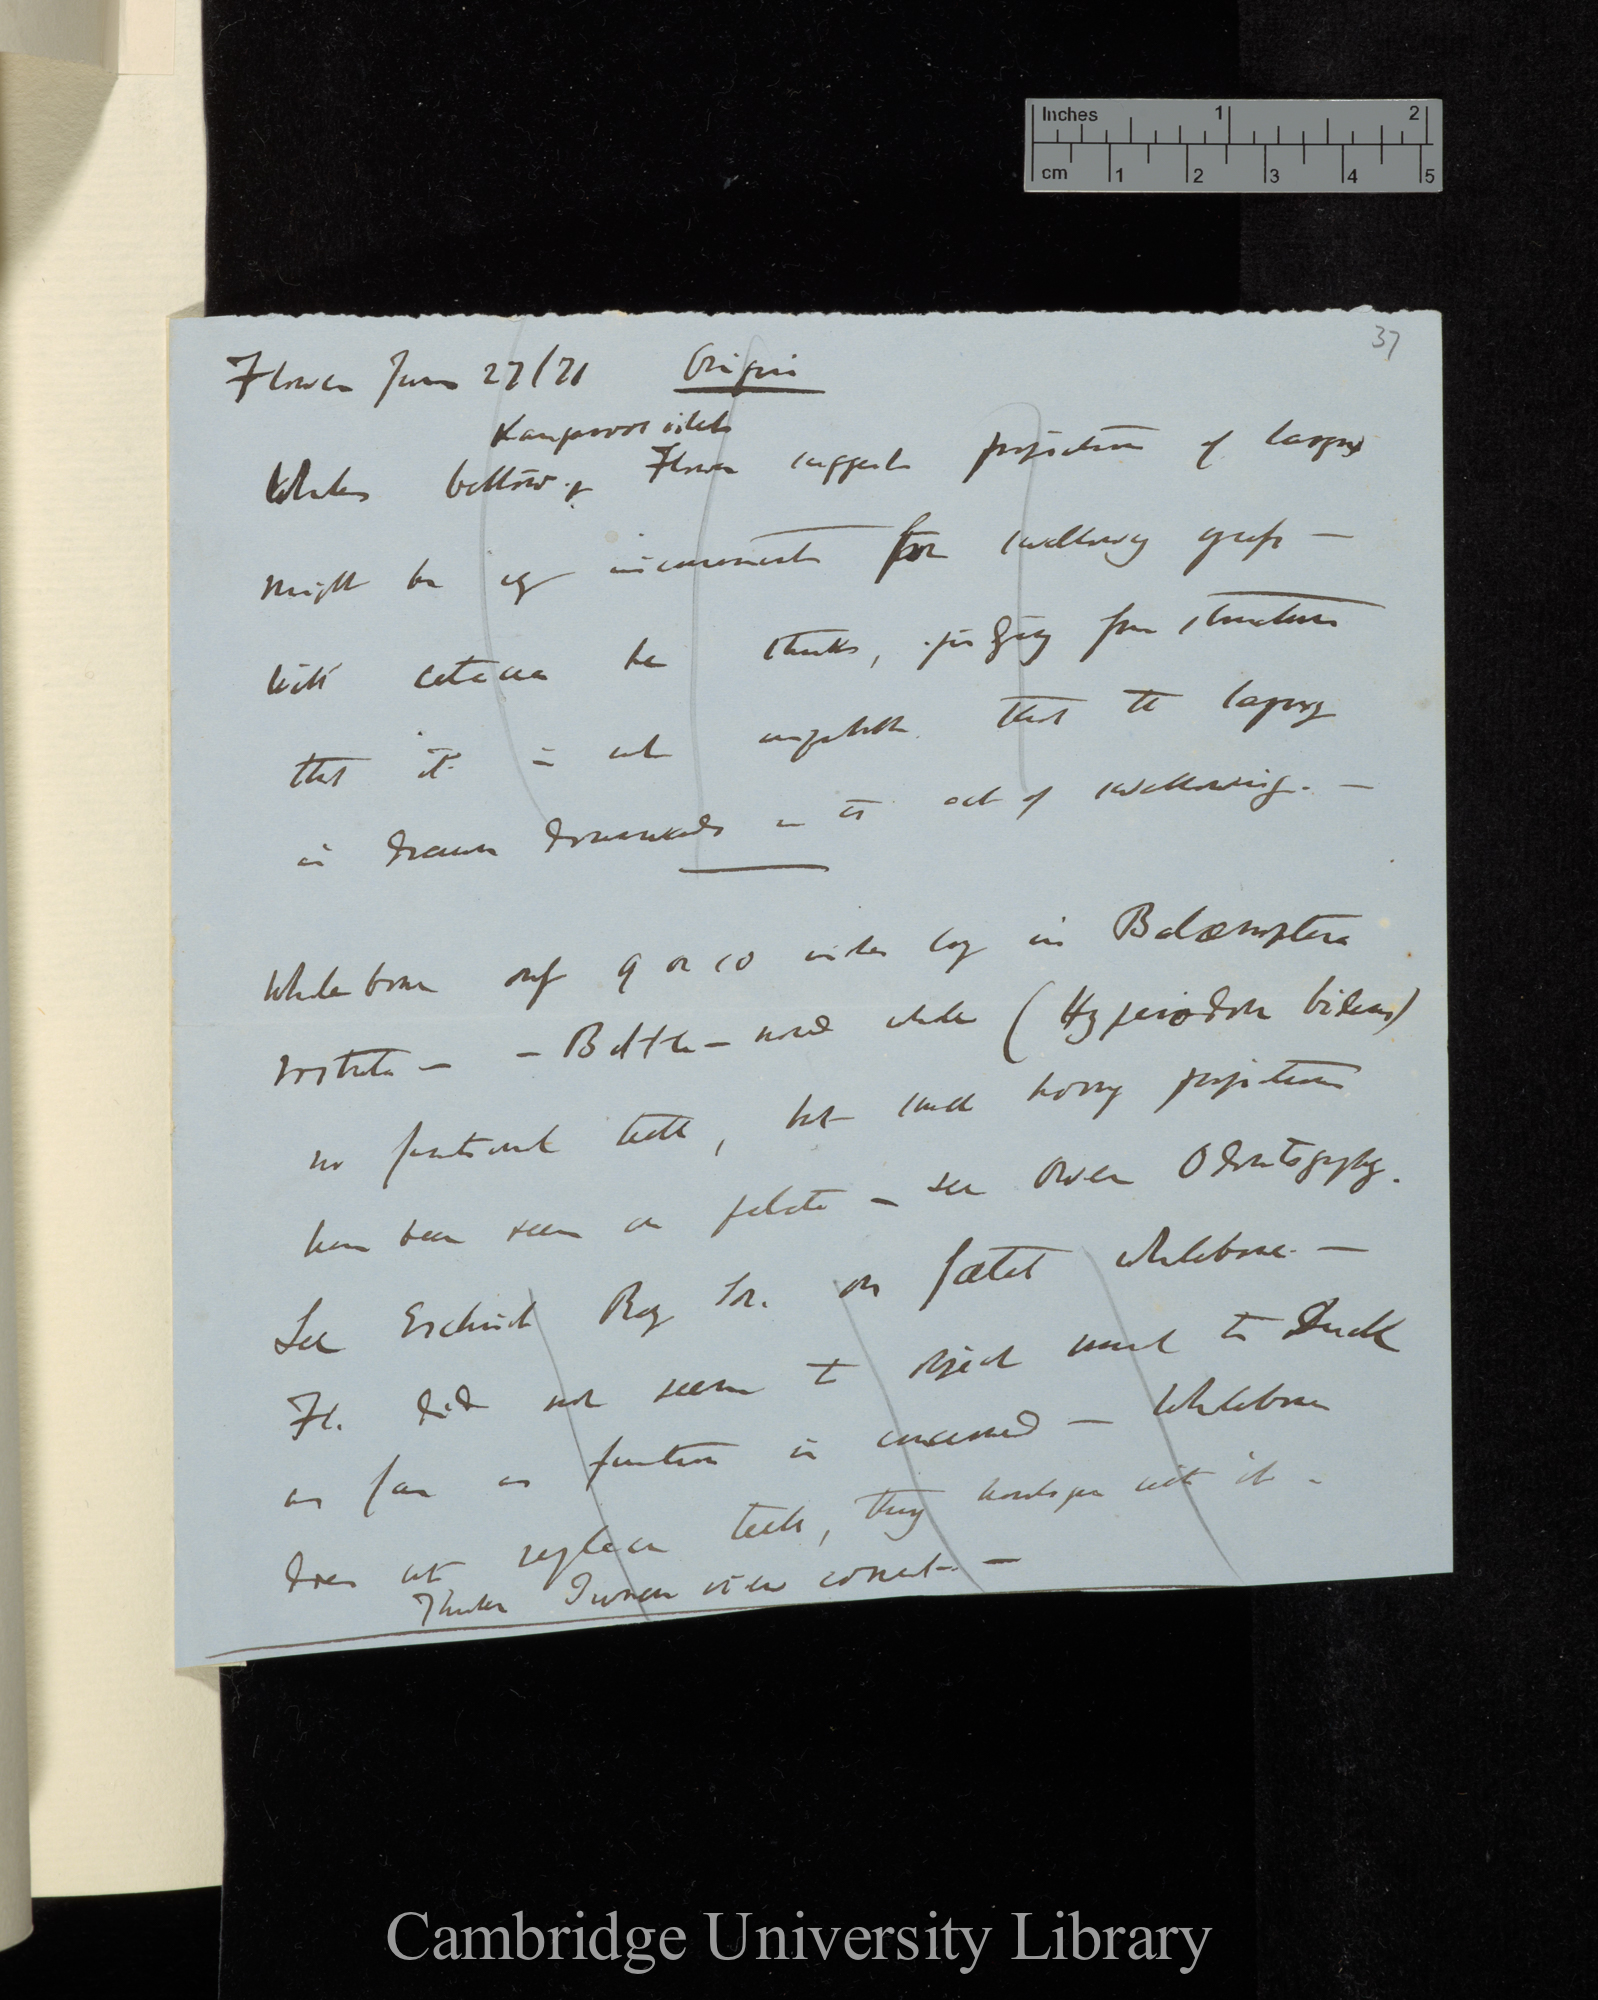 Inches 1 2
cm 1 2 3 4 5
37
Flower June 27/71 Origin
Kangaroos
Whales bellow. & Flower suggests projection of larynx
might be inconvenient for swallowing —
with cetacea he thinks, judging from structure
that it is not improbable that the larynx
is drawn downwards in the act of swallowing. —
Whale bone only 9 or 10 inches long in Balænoptera
rostrata — — Bottle-nosed whale (Hyperoodon bidens)
no functional teeth, but small horny projections
have been seen on palate — see Owen Odontography.
See Eschricht Ray Soc. on fœtal whalebone. —
Fl. did not seem to object much to Duck
as far as function is concerned — Whalebone
does not replace teeth, they with it —
Thinks view correct. —
Cambridge University Library